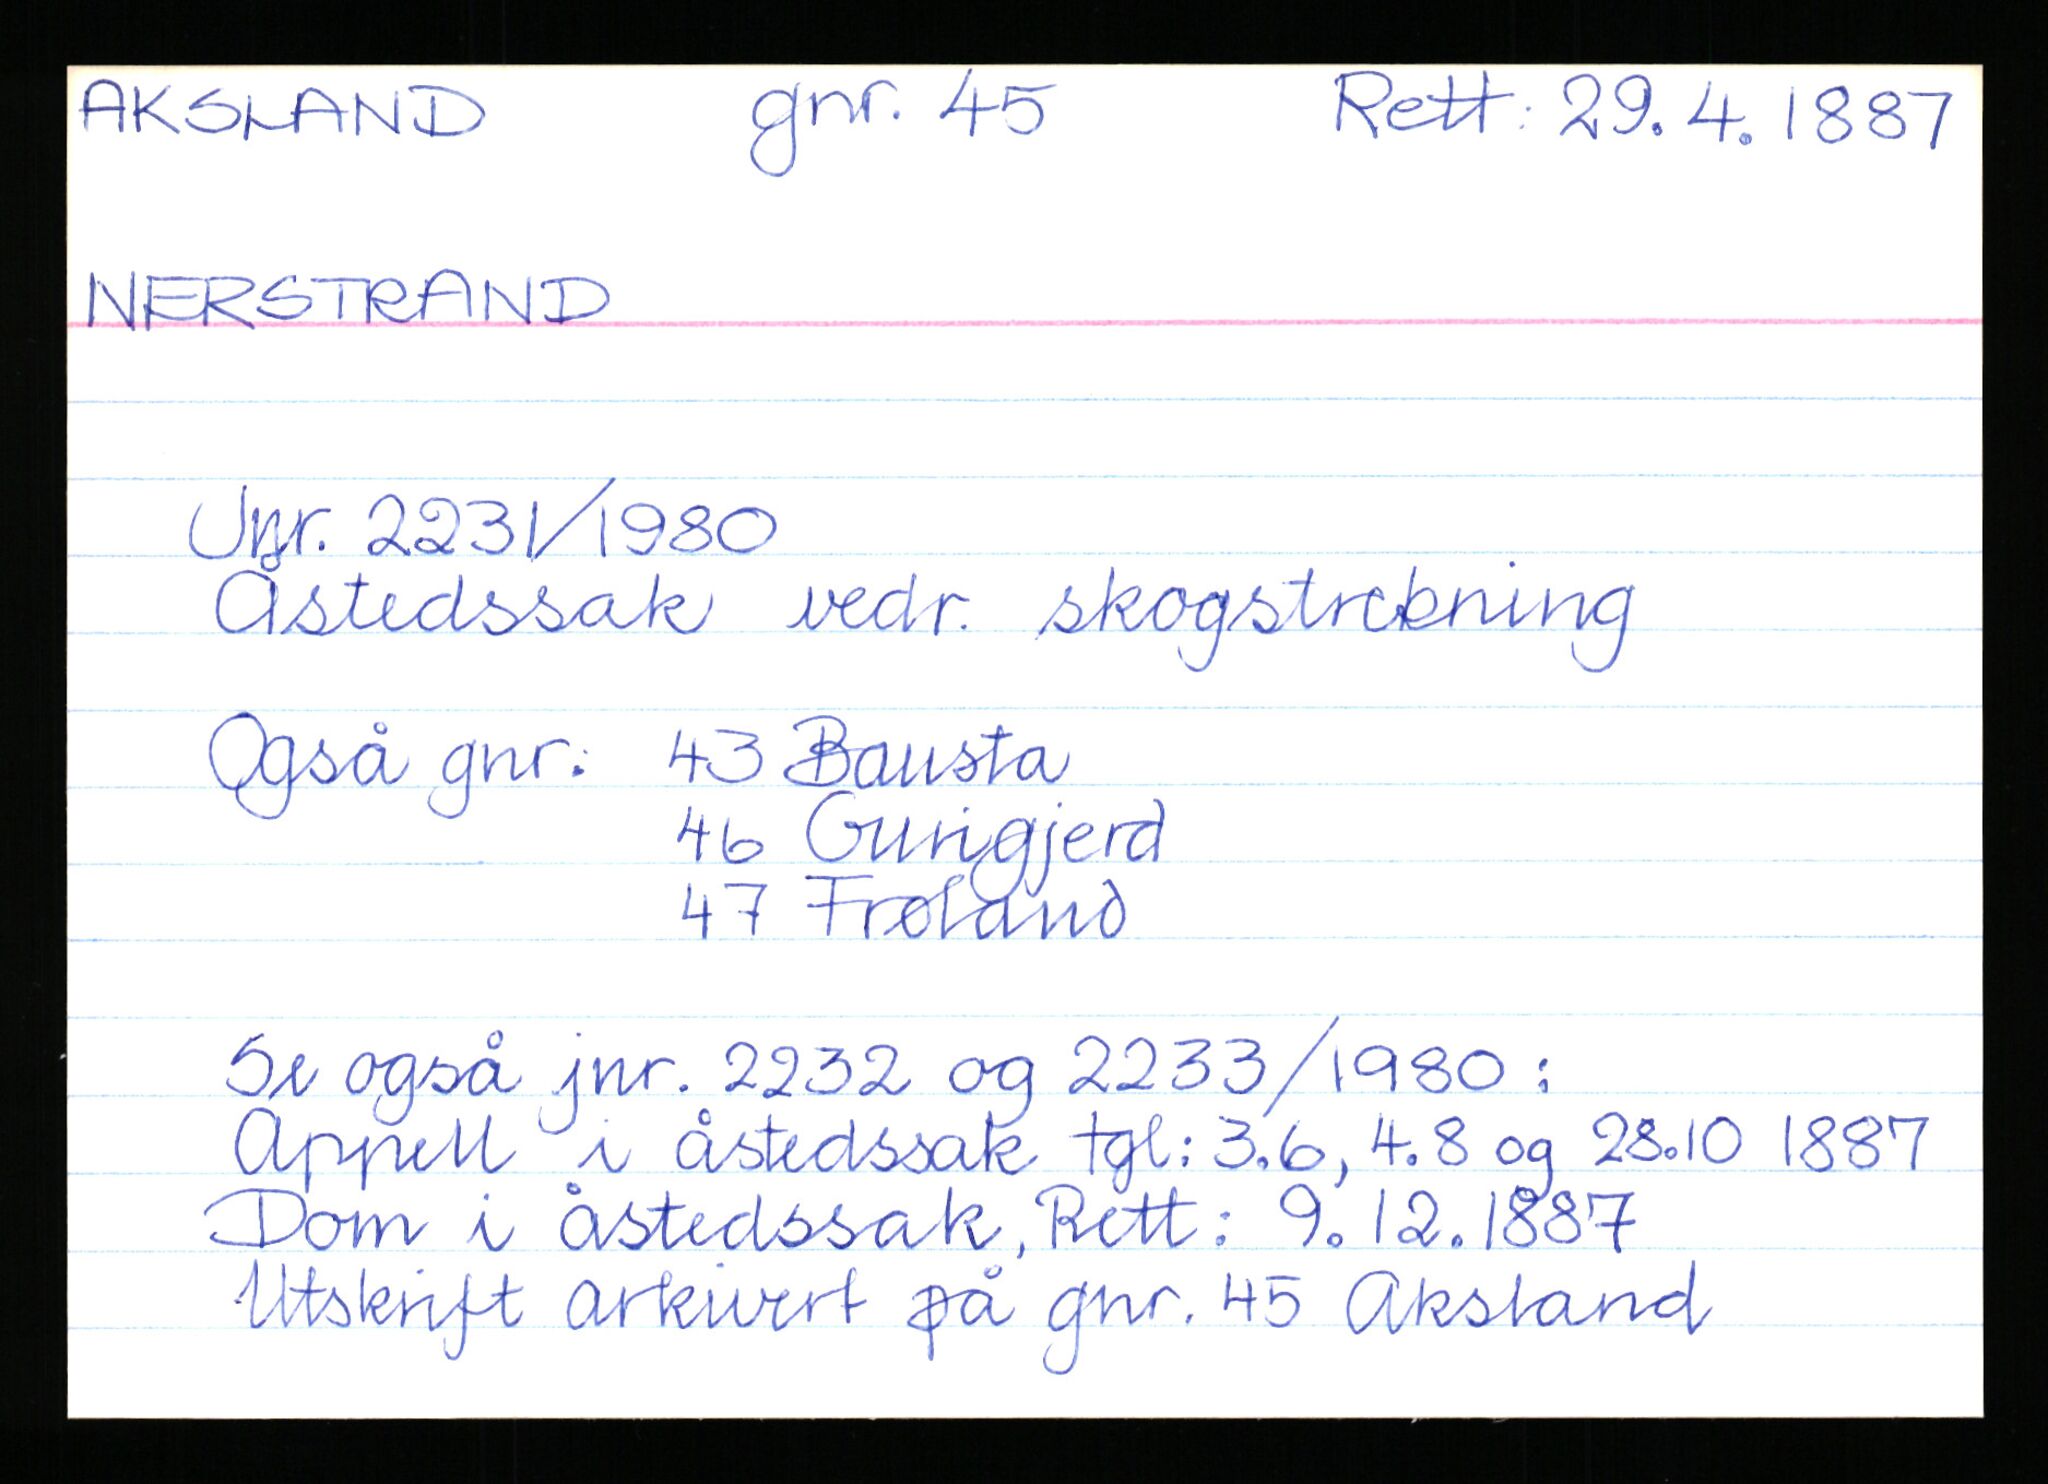 AKSLAND gnr. 45 Rett: 29.4.1887
NERSTRAND
Jnr. 2231/1980
Åstedssak vedr. skogstrekning
Også gnr: 43 Bausta
46 Gunigjerd
47 Frøland
Se også jnr. 2232 og 2233/1980:
Appell i åstedssak tgl: 3.6, 4.8 og 28.10 1887
Dom i åstedssak, Rett: 9.12.1887
Utskrift arkivert på gnr. 45 Aksland